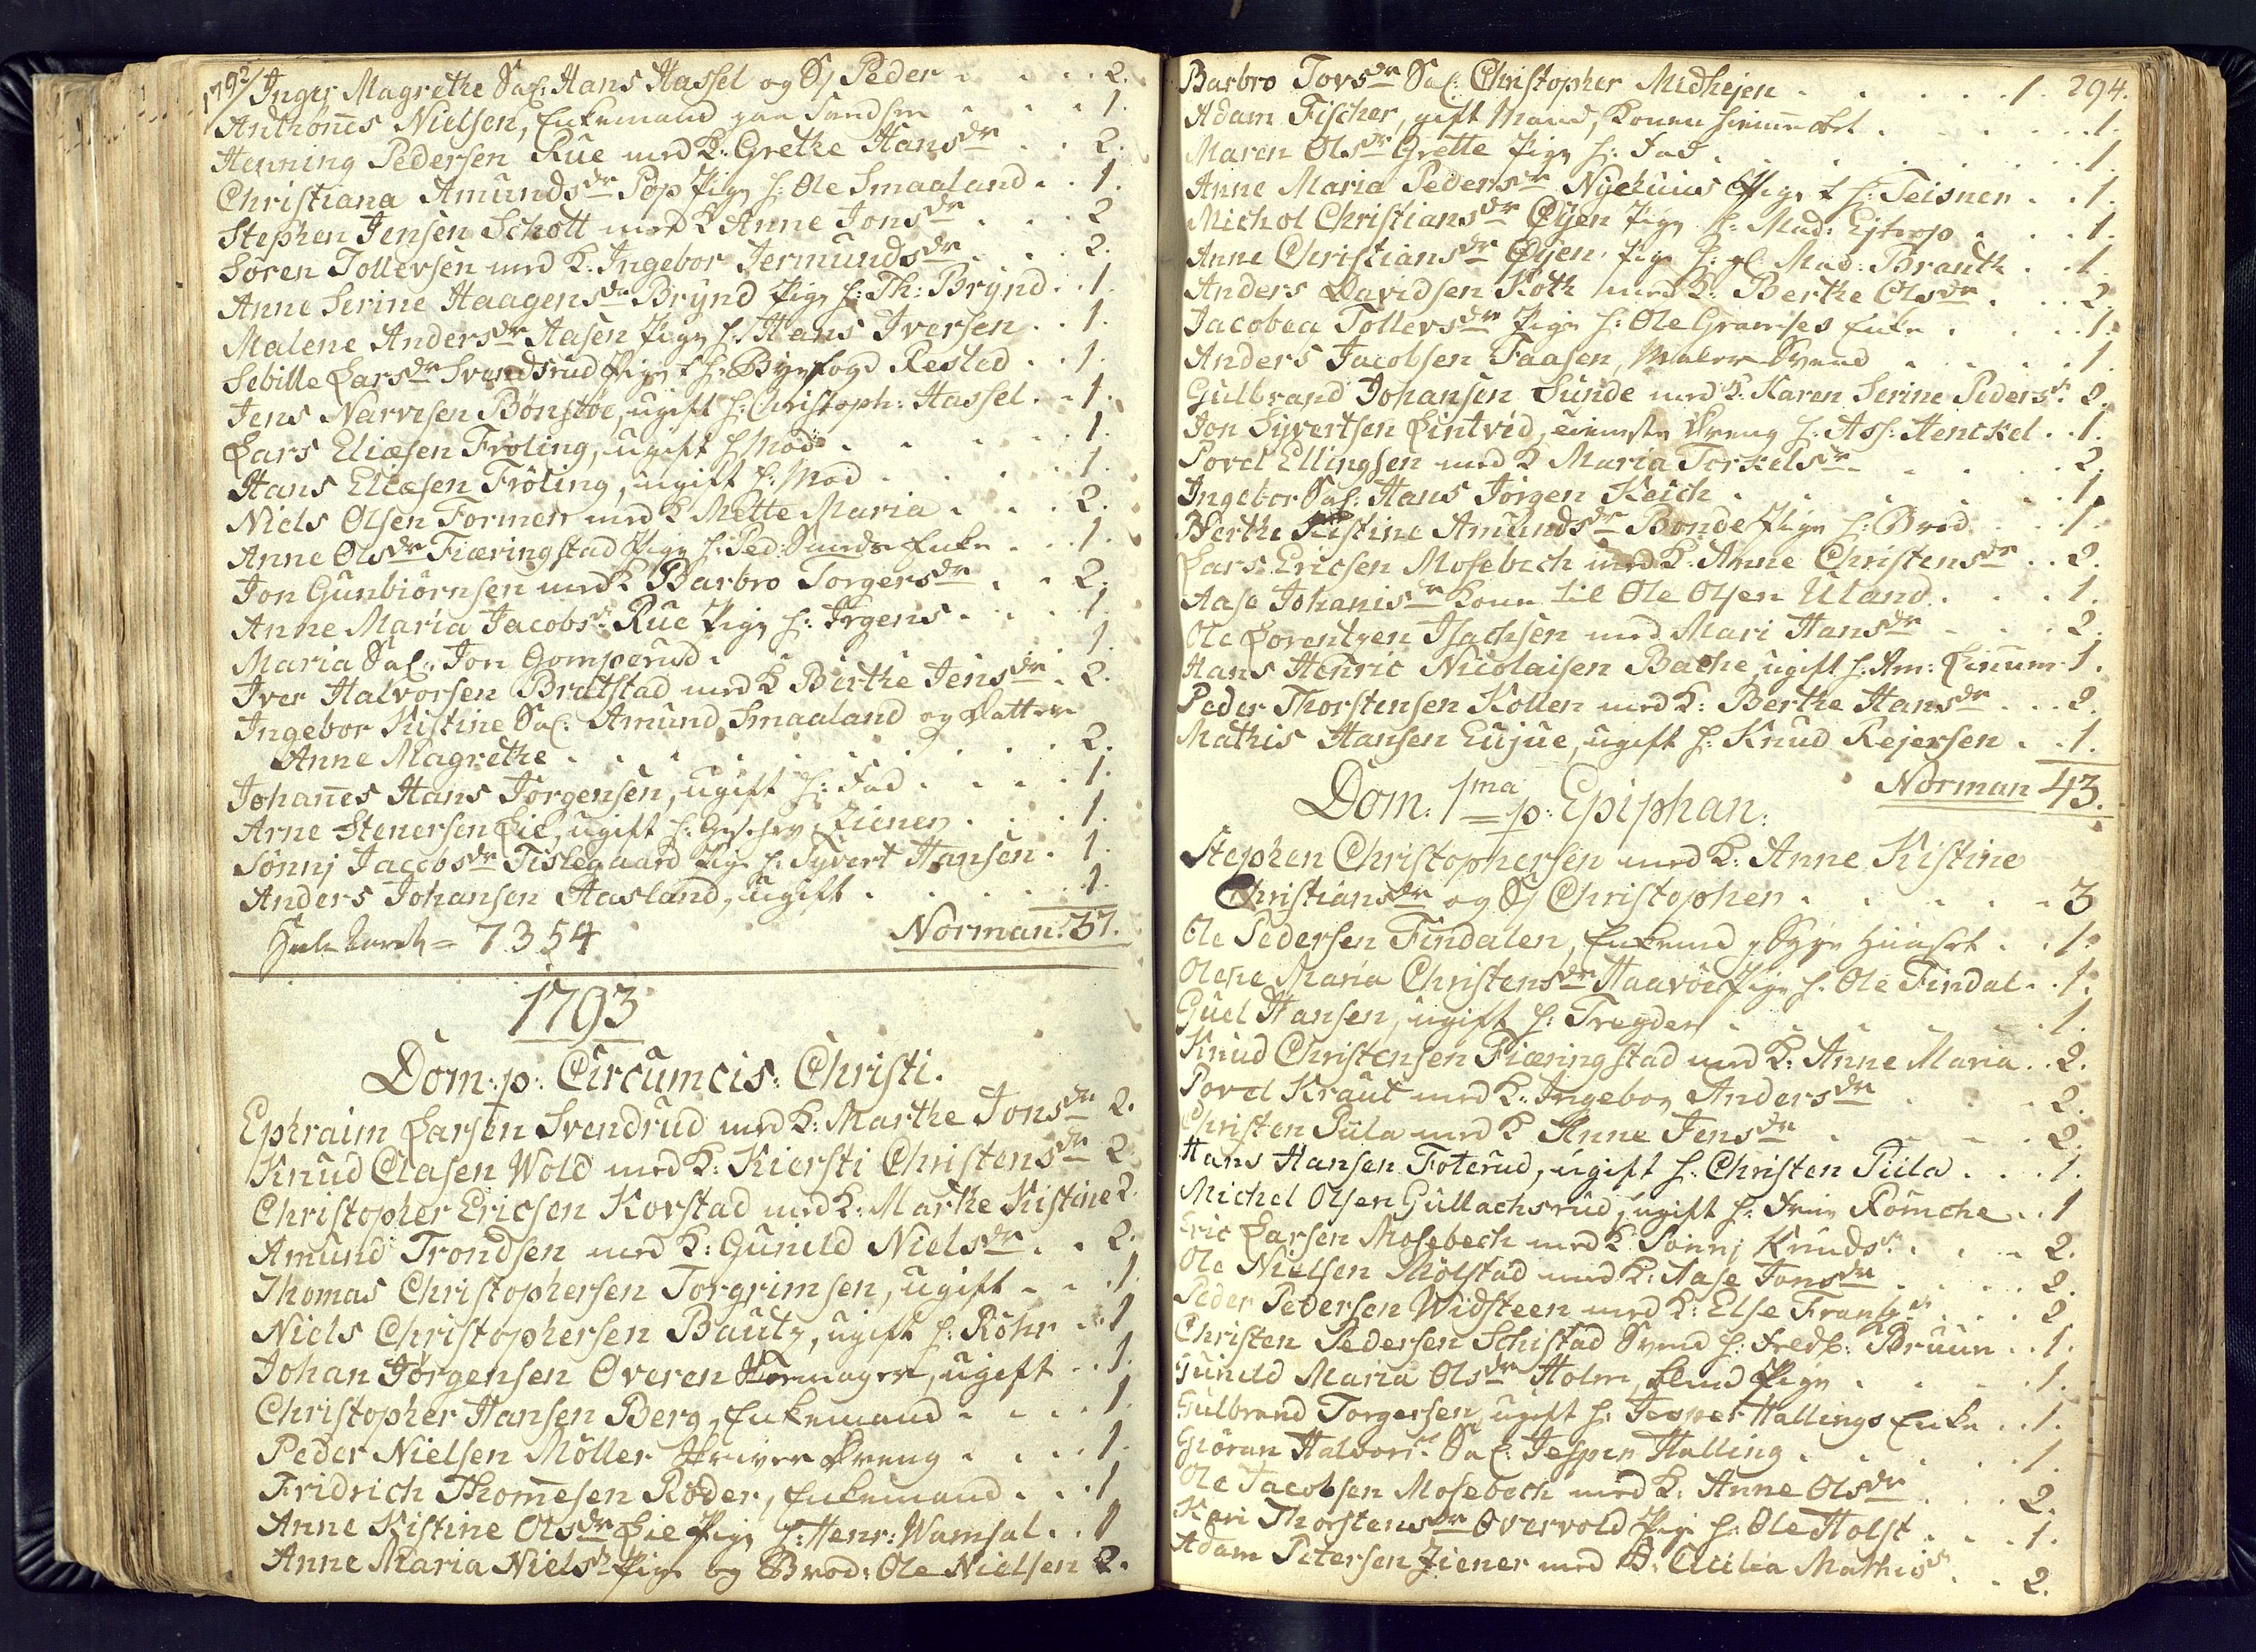 1792/ Inger Magrethe Sal: Hans Hassel og S/ Peder . . . 2.
Anthones Nielsen, Enkemand paa Sandsen . . 1.
Henning Pedersen Rue med K: Grethe Hansdr . . 2.
Christiana Amundsdr Pop Pige h: Ole Smaaland . . 1.
Stephen Jensen Schott med K Anne Jonsdr . . . 2
Sören Tollevsen med K. Ingebor Jermundsdr . . . 2.
Anne Serine Haagensdr Brÿnd Pige h: Th: Brÿnd . . 1.
Malene Andersdr Aasen Pige h: Hans Iversen . . 1.
Sebille Larsdr Svendsrud Pige h: Byefogd Rested . . 1.
Jens Narvesen Bönstöe, ugift h: Christoph: Hassel . . 1.
Lars Eliæsen Fröling, ugift h: Mod . . . . 1.
Hans Eliæsen Fröling, ugift h: Mod . . . . 1.
Niels Olsen Formen med K Mette Maria . . . 2.
Anne Olsdr Fiæringstad Pige h: Ped: Sunds Enke . . . 1.
Jon Gunbiörnsen med K Barbro Torgersdr . . 2.
Anne Maria Jacobs: Rue Pige h: Irgens . . . 1.
Maria Sal: Jon Gomperud . . . 1.
Iver Halvorsen Bratstad med K Birthe Jensdr . 2.
Ingebor Kistine Sal: Amund Smaaland og Datter
Anne Magrethe . . . . . . . 2.
Johan̄es Hans Jörgensen, ugift h: Fad . . . . 1.
Arne Stenersen Lie, ugift h: Ziener . . . 1.
Sönnj Jacobsdr Tislegaard Pige h: Syvert Hansen . 1.
Anders Johansen Aasland, ugift . . . . . 1.
= 7354
Norman 37.
1793
Dom: p: Circumcis: Christi.
Ephraim Larsen Svendrud med K: Marthe Jonsdr 2.
Knud Clasen Wold med K: Kiersti Christensdr 2
Christopher Ericsen Korstad med K: Marthe Kistine 2.
Amund Trondsen med K: Gunild Nielsdr . . 2.
Thomas Christophersen Torgrimsen, ugift . . . 1.
Niels Christophersen Bautz, ugift h: Röhr . . 1
Johan Jörgensen Overen Skomager, ugift . . 1.
Christopher Hansen Berg, Enkemand . . . . 1.
Peder Nielsen Möller Skriver Dreng . . . . 1.
Fridrich Thom̄esen Röder, Enkemand . . . 1
Anne Kistine Olsdr Lie Pige h: Henr: Wamsal . . 1
Anne Maria Nielsdr Pige og Brod: Ole Nielsen 2.
Barbro Torsdr Sal: Christopher Midhejen . . . . . 1. 294.
Adam Fischer, gift Mand, Konen . . . . 1.
Maren Olsdr Grette Pige h: Fad . . . . . . 1.
Anne Maria Pedersdr Nyehuus Pige h: Teisner . . 1.
Michol Christiansdr Öÿen Pige h: Mad: Ejtorp . . . 1.
Anne Christiansdr Öÿen, Pige h: gl: Mad: Brauth . . 1.
Anders Davidsen Roth med K: Berthe Olsdr . . . 2.
Jacobea Tollevsdr Pige h: Ole Gramses Enke . . . . 1.
Anders Jacobsen Faasen, Maler Svend . . . . 1.
Gulbrand Johansen Sunde med K: Karen Serine Pedersdr 2.
Jon Sÿvertsen Lintvid, Dreng h: Ass: Henckel . . 1.
Povel Ellingsen med K Maria Torkelsdr . . . 2.
Ingebor Sal: Hans Jörgen Keich . . . . . 1.
Berthe Kistine Amundsdr Bonde Pige h: Brod . . . 1.
Lars Ericsen Mosebech med K: Anne Christensdr . . 2.
Aase Johanisdr Kone til Ole Olsen Uland . . . 1.
Ole Lorentzen Isachsen med Mari Hansdr . . . 2.
Hans Henric Nicolaisen Bache, ugift h: Am: Linum . 1.
Peder Thorstensen Kollen med K: Berthe Hansdr . . . 2.
Mathis Hansen Eujue, ugift h: Knud Rejersen . . 1.
Norman 43.
Dom: 1ma p: Epiphan:
Stephen Christophersen med K: Anne Kistine
Christiansdr og S/ Christopher . . . . . 3
Ole Pedersen Findalen, Enkemd . . 1.
Olene Maria Christensdr Haavöe Pige h: Ole Findal . . 1.
Guel Hansen, ugift h: Tregder . . . . . . 1.
Knud Christensen Fiæringstad med K: Anne Maria . . 2.
Povel Kraut med K: Ingebor Andersdr . . . 2.
Christen Piila med K Anne Jensdr . . . . 2.
Hans Hansen Foterud, ugift h: Christen Piila . . . 1.
Michel Olsen Gullachsrud, ugift h: Römche . . 1
Eric Larsen Mosebech med K Sönnj Knuds: . . . 2.
Ole Nielsen Mölstad med K: Aase Jonsdr . . . . 2.
Peder Pedersen Widsteen med K: Else Frans: . . . 2
Christen Pedersen Schistad Svend h: Fredr: Bruun . . 1.
Gunild Maria Olsdr Holm, blind Pige . . . . 1.
Gulbrand Torgersen, ugift h: Jesper Hallings Enke . . 1.
Giöran Halvors: Sal: Jesper Halling . . . . . 1.
Ole Jacobsen Mosebech med K: Anne Olsdr . . . 2.
Kari Thorstensdr Overvold Pige h: Ole Holst . . . 1.
Adam Petersen Ziener med K: Cicilia Mathis: . . 2.